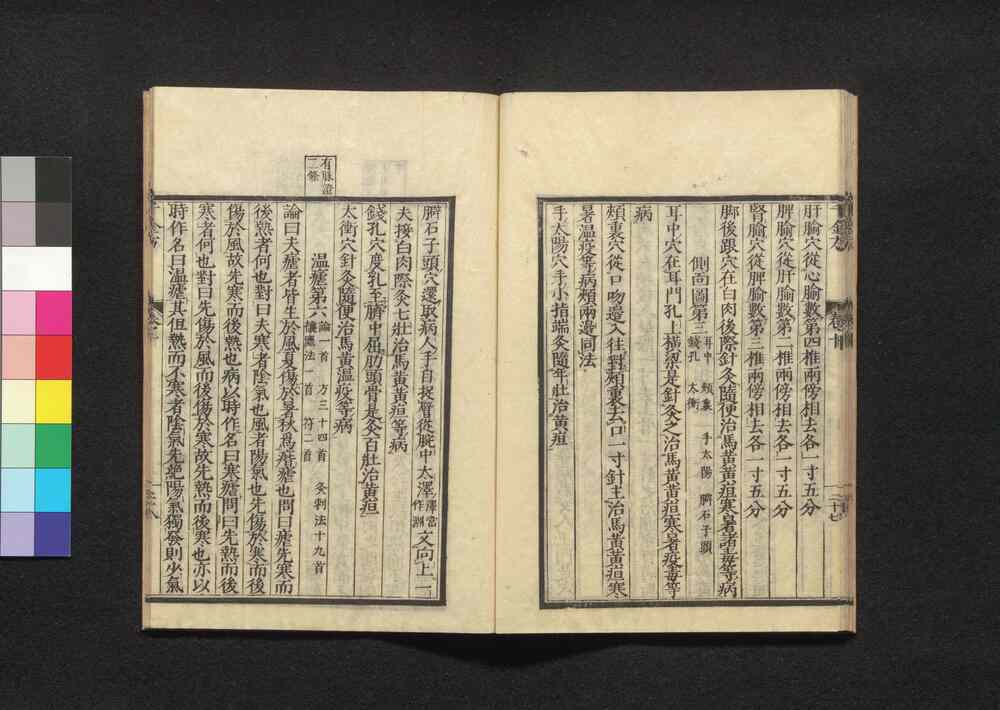 肝腧穴從心腧數第四椎兩傍相去各一寸五分
脾腧穴從肝腧數第二椎兩傍相去各一寸五分
腎腧穴從脾腧數第三椎兩傍相去各一寸五分
脚後跟穴在白肉後際針灸隨便治馬黄黄疸寒暑諸毒等病
側面圖第三 耳中 頰裏 手太陽 臂石子頭
錢孔 太衝
耳中穴在耳門孔上横梁是針灸之治馬黄黄疸寒暑疫毒等
病
頰裏穴從口吻邊入往對頰裏去口一寸針主治馬黄黄疸寒
暑温疫等病頰兩邊同法
手太陽穴手小指端灸隨年壯治黄疸
臂石子頭穴還取病人手自捉臂從腕中太澤 澤當
作淵 文向上一
夫接白肉際灸七壯治馬黄黄疸等病
錢孔穴度乳至臍中屈肋頭骨是灸百壯治黄疸
太衝穴針灸隨便治馬黄温疫等病
有脉證
二條
温瘧第六 論一首 方三十四首 灸刺法十九首
禳瘧法一首 符二首
論曰夫瘧者皆生於風夏傷於暑秋爲痎瘧也問曰瘧先寒而
後熱者何也對曰夫寒者陰氣也風者陽氣也先傷於寒而後
傷於風故先寒而後熱也病以時作名曰寒瘧問曰先熱而後
寒者何也對曰先傷於風而後傷於寒故先熱而後寒也亦以
時作名曰温瘧其但熱而不寒者陰氣先絶陽氣獨發則少氣